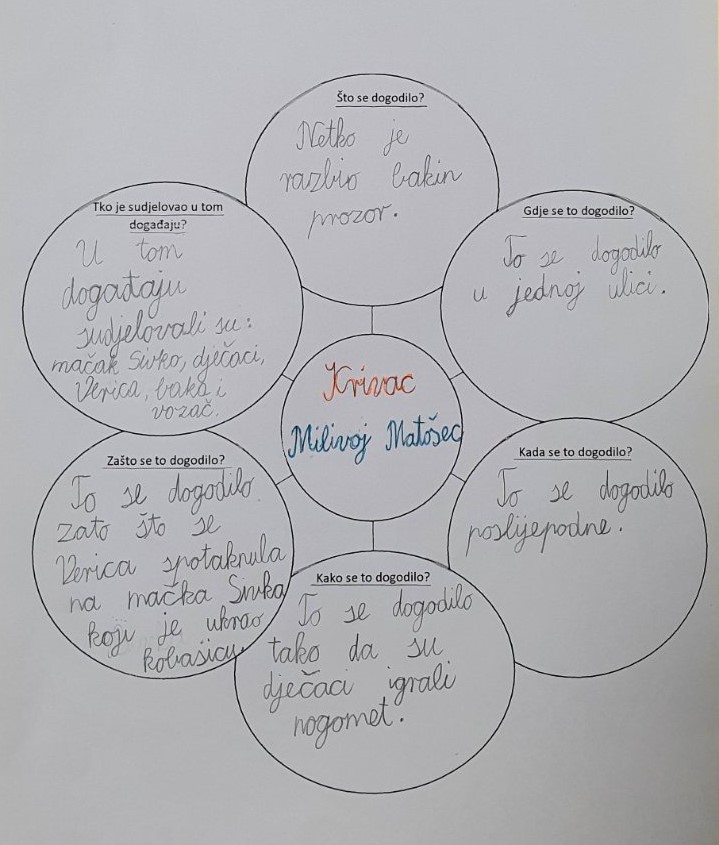 Što se dogodilo?
Netko je
razbio bakin
prozor.
Gdje se to dogodilo?
To se dogodilo
u jednoj ulici.
Kada se to dogodilo?
To se dogodilo
poslijepodne.
Kako se to dogodilo?
To se dogodilo
tako da su
dječaci igrali
nogomet.
Zašto se to dogodilo?
To se dogodilo
zato što se
Verica spotaknula
na mačka Sivka
koji je ukrao
kobasicu
Tko je sudjelovao u tom
događaju?
U tom
događaju
sudjelovali su:
mačak Sivko, dječaci,
Verica, baka i
vozač.
Krivac
Milivoj Matošec